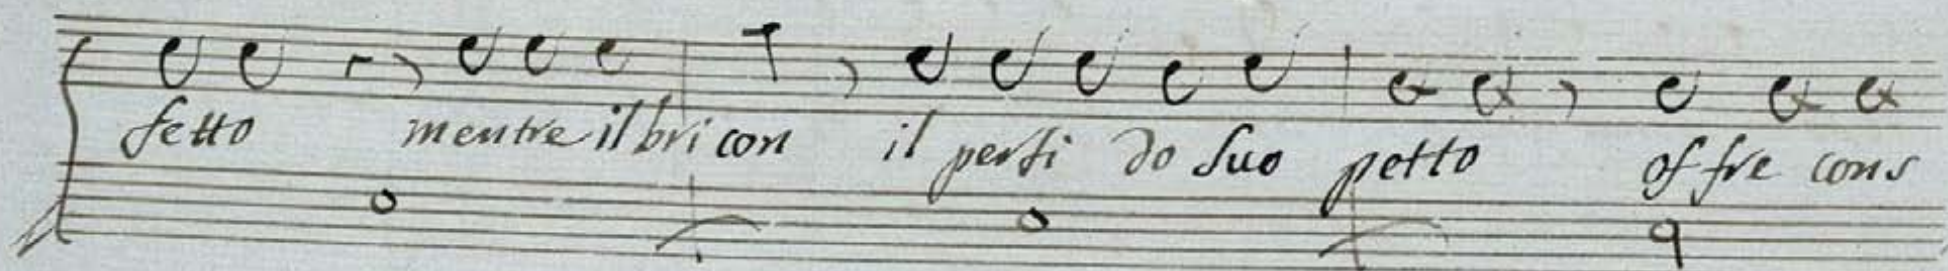 fetto mentre il bri con il perfi do suo petto of fre cons